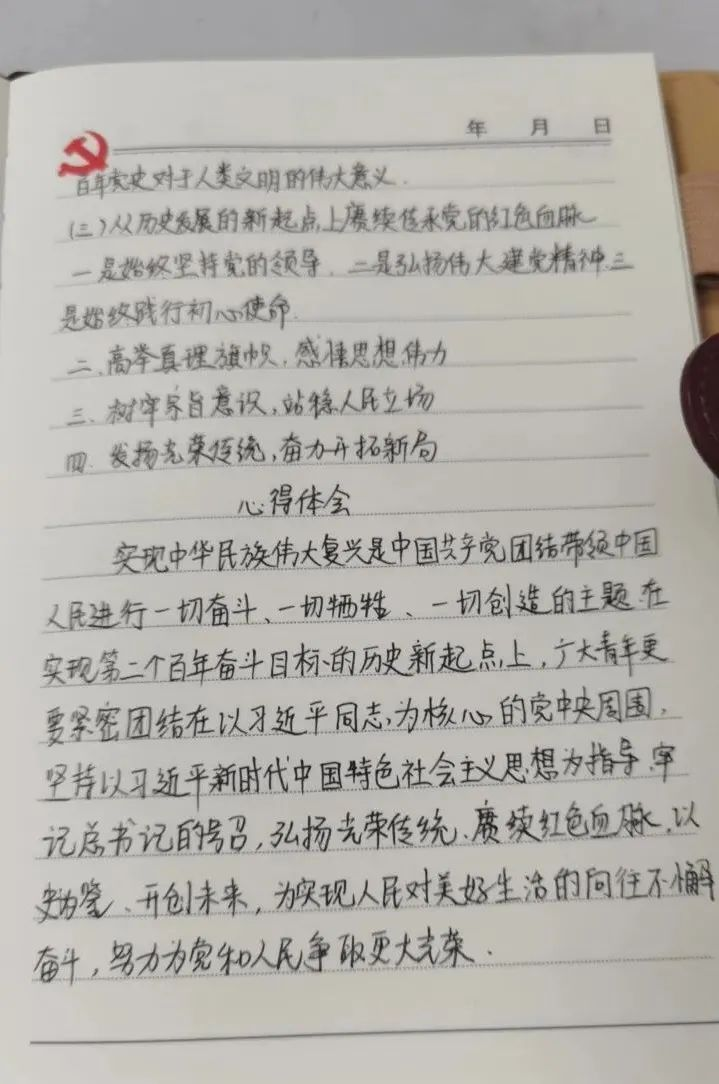 年 月 日
百年党史对于人类文明的伟大意义.
(三)从历史发展的新起点上赓续传承党的红色血脉
一是始终坚持党的领导.二是弘扬伟大建党精神.三
是始终践行初心使命.
二.高举真理旗帜,感悟思想伟力
三.树牢宗旨意识,站稳人民立场
四.发扬光荣传统,奋力开拓新局
心得体会
实现中华民族伟大复兴是中国共产党团结带领中国
人民进行一切奋斗、一切牺牲、一切创造的主题.在
实现第二个百年奋斗目标的历史新起点上,广大青年更
要紧密团结在以习近平同志为核心的党中央周围,
坚持以习近平新时代中国特色社会主义思想为指导.牢
记总书记的号召,弘扬光荣传统、赓续红色血脉,以
史为鉴、开创未来,为实现人民对美好生活的向往不懈
奋斗,努力为党和人民争取更大光荣.